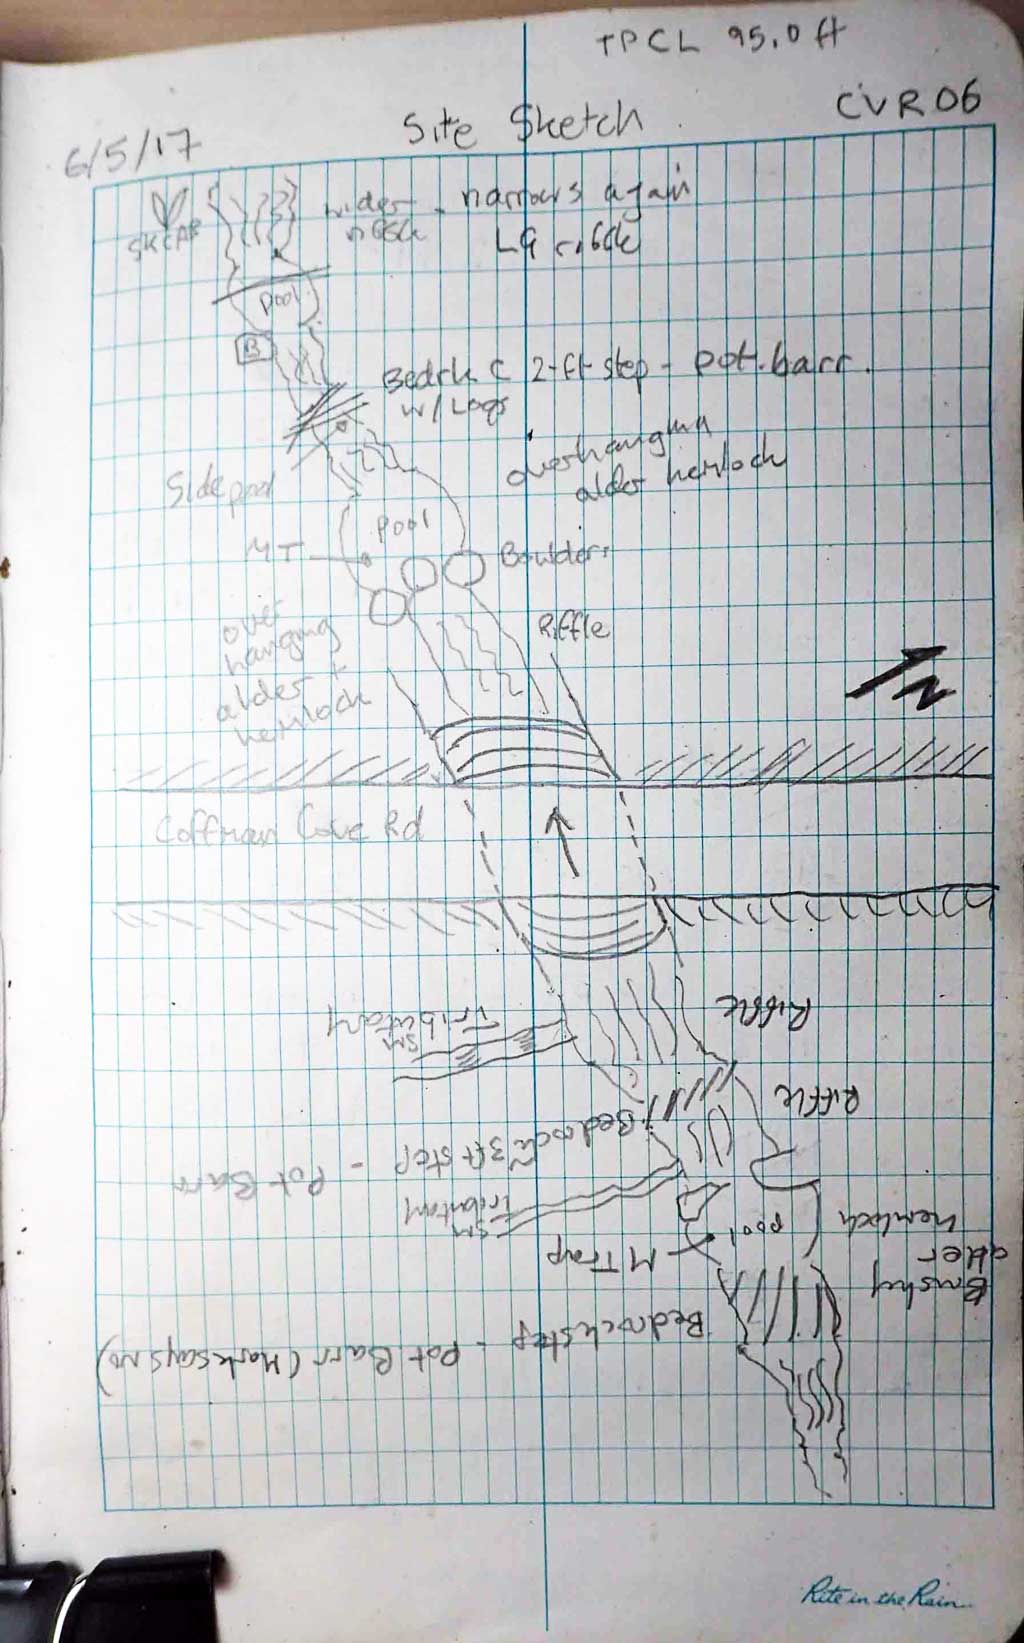 TPCL 95.0 ft
CVR06
Site Sketch
6/5/17
wider - narrows again
LG
pool
B
Bedrk 2-ft step - pot. barr.
w/ Logs
overhanging
alder hemlock
Side pool
pool
MT
Bowlders
over
hanging
alder +
hemlock
Riffle
N
Coffman Cove Rd
Riffle
SM
Tributary
Riffle
Bedrock 3ft step - Pot Barr
SM
Tributary
hemlock
pool
M Trap
Brushy
alder
Bedrock step - Pot Barr (Mark says no)
Rite in the Rain